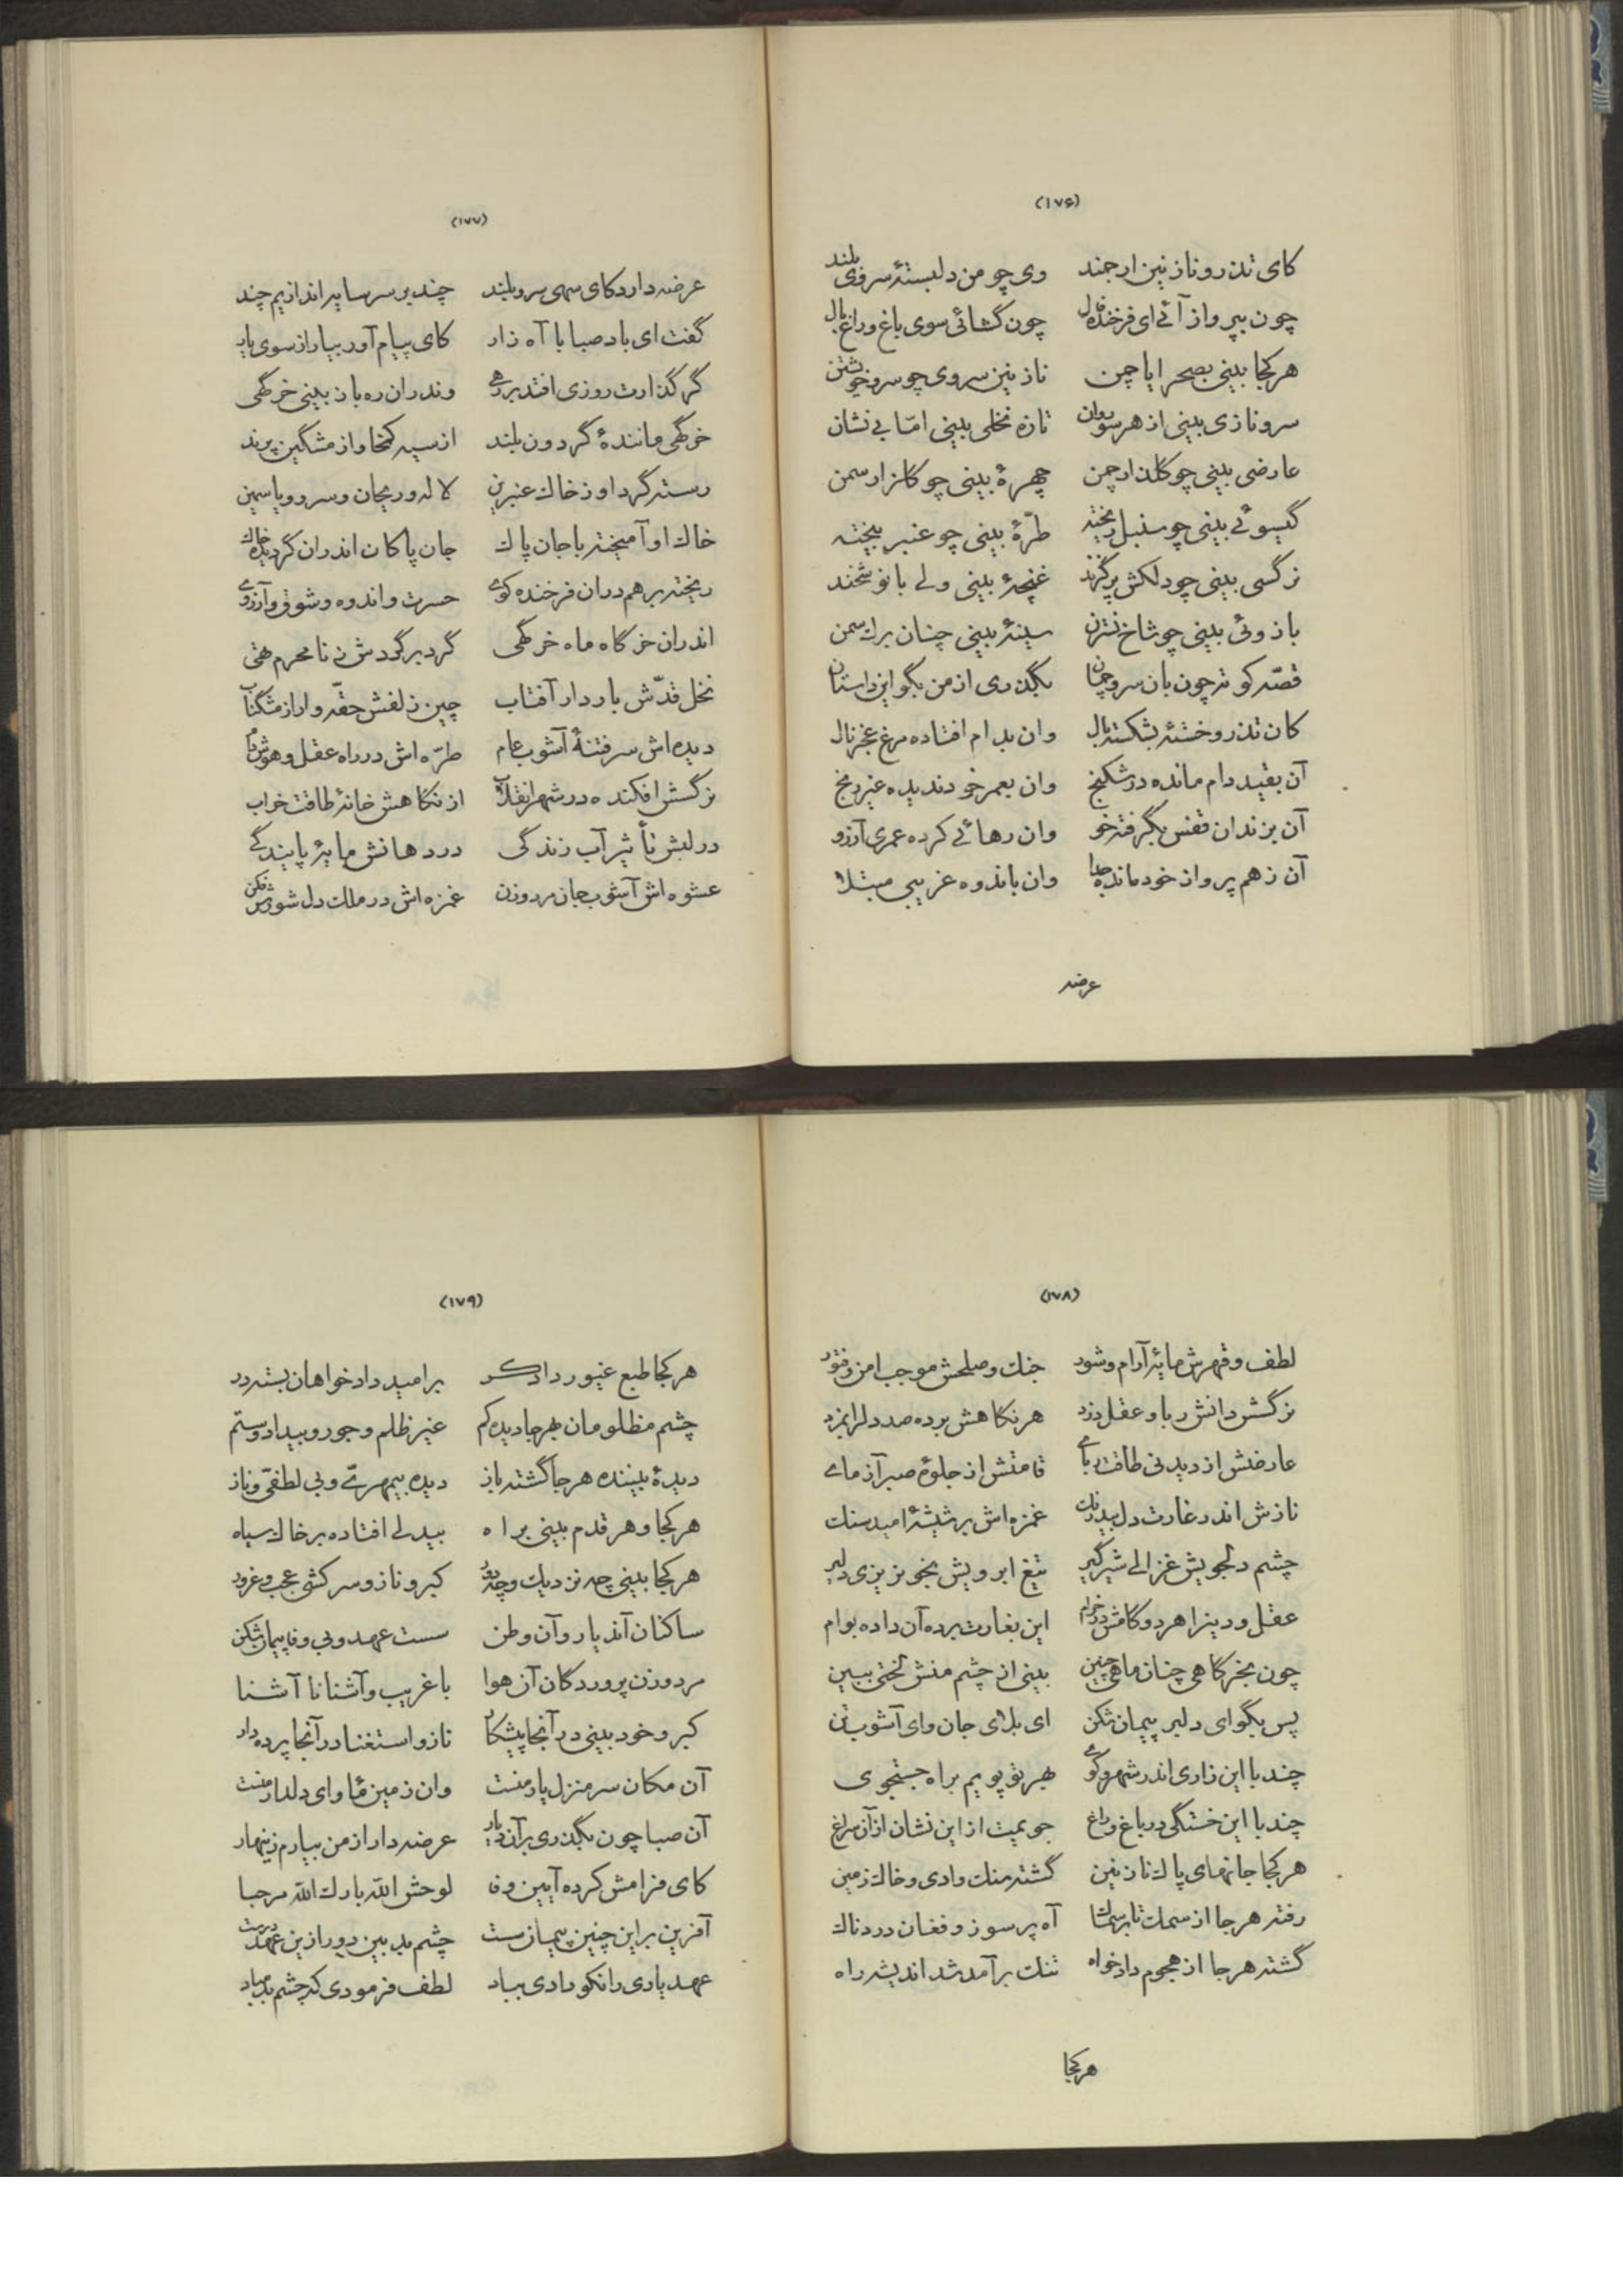 (۱۷۶)
کای تذرو نازنین ارجمند وی چو من دلبستهٔ سروی بلند
چون بپرواز آئی ای فرخنده فال چون گشائی سوی باغ و راغ بال
هر کجا بینی بصحرا یا چمن نازنین سروی چو سرو خویشتن
سرو نازی بینی از هر سو روان تازه نخلی بینی امّا بی نشان
عارضی بینی چو گلنار چمن چهرهٔ بینی چو گلزار سمن
گیسوئی بینی چو سنبل ریخته طرّهٔ بینی چو عنبر بیخته
نرگسی بینی چو دلکش پر گزند غنچهٔ بینی ولی با نوشخند
بازوئی بینی چو شاخ نسترن سینهٔ بینی چنان برك سمن
قصّه کوته چون بان سرو چمان بگذری از من بگو این داستان
کان تذرو خستهٔ بشکسته بال وان بدام افتاده مرغ عجز نال
آن بقید دام مانده در شکنج وان بعمر خود ندیده غیر رنج
آن بزندان قفس بگرفته خو وان رهائی کرده عمری آرزو
آن ز هم پرواز خود مانده جدا وان باندوه غریبی مبتلا
عرضه
(۱۷۷)
عرضه دارد کای سهی سرو بلند چند بر سر سایه اندازیم چند
گفت ای باد صبا با آه زار کای پیام آور بیار از سوی یار
گر گذارت روزی افتد بر رهی وندران ره باز بینی خرگهی
خرگهی مانندهٔ گردون بلند از سیه کمخا و از مشگین پرند
رسته گرد او ز خاك عنبرین لاله و ریحان و سرو و یاسمین
خاك او آمیخته با جان پاك جان پاکان اندران گردیده خاك
ریخته بر هم دران فرخنده کوی حسرت و اندوه و شوق و آرزوی
اندران خرگاه ماه خرگهی گرد بر گردش ز نامحرم تهی
نخل قدّش باردار آفتاب چین زلفش حقّه وار از مشگناب
دیده اش سر فتنهٔ آشوب عام طرّه اش در راه عقل و هوش دام
نرگسش افکنده در شهر انقلاب از نگاهش خانهٔ طاقت خراب
در لبش تأثیر آب زندگی در دهانش مایهٔ پایندگی
عشوه اش آشوب جان مرد و زن غمزه اش در ملك دل شورش فکن
(۱۷۸)
لطف و قهرش مایهٔ آرام و شور جنك و صلحش موجب امن و فتور
نرگسش دانش ربا و عقل دزد هر نگاهش برده صد دل را بمزد
عارضش از دیدنی طاقت ربای قامتش از جلوهٔ صبر آزمای
نازش اندر غارت دل بیدرنك غمزه اش بر شیشهٔ امید سنك
چشم دلجویش غزالی شیرگیر تیغ ابرویش بخونریزی دلیر
عقل و دین را هر دو گامش در خرام این بغارت برده آن داده بوام
چون بخرگاهی چنان ماهی چنین بینی از چشم منش لختی ببین
پس بگو ای دلبر پیمان شکن ای بلای جان و ای آشوب تن
چند با این زاری اندر شهر و کوی بهر تو پویم براه جستجوی
چند با این خستگی در باغ و راغ جویمت از این نشان از آن سراغ
هر کجا جانهای پاك نازنین گشته سنك وادی و خاك زمین
رفته هر جا از سمك تا بر سماك آه پر سوز و فغان دردناك
گشته هر جا از هجوم دادخواه تنك بر آمد شد اندیشه راه
هر کجا
(۱۷۹)
هر کجا طبع غیور دادگر بر امید دادخواهان بسته در
چشم مظلومان بهر جا دیده کم غیر ظلم و جور و بیداد و ستم
دیدهٔ بیننده هر جا گشته باز دیده بیمهری و بی لطفی و ناز
هر کجا و هر قدم بینی براه بیدلی افتاده بر خاك سیاه
هر کجا بینی چه نزدیك و چه دور کبر و ناز و سرکشی عجب و غرور
ساکنان آندیار و آن وطن سست عهد و بی وفا پیمان شکن
مرد و زن پروردگان آن هوا با غریب و آشنا نا آشنا
کبر و خودبینی در آنجا پیشکار ناز و استغنا در آنجا پرده دار
آن مکان سر منزل یار منست وان زمین مأوای دلدار منست
آن صبا چون بگذری بر آن دیار عرضه دار از من بیارم زینهار
کای فرامش کرده آیین وفا لوحش الله بارك الله مرحبا
آفرین بر این چنین پیمان سست چشم بد بین دور ازین عهد درست
عهد یاری را نکو دادی بباد لطف فرمودی که چشم بد مباد